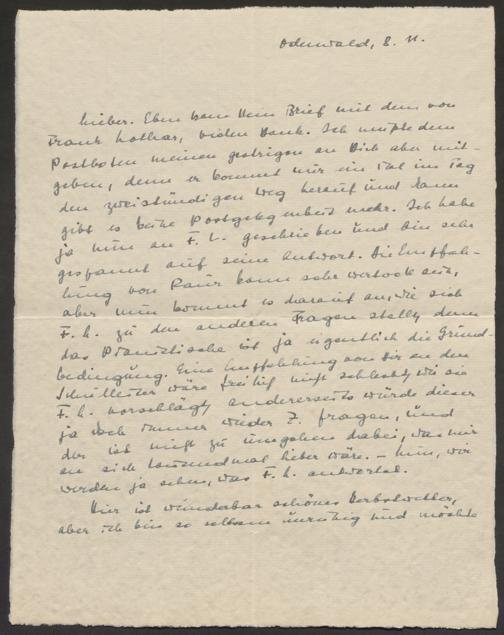 Odenwald, 8. 11.
Lieber. Eben kam Dein Brief mit dem von
Frank Lothar, vielen Dank. Ich musste dem
Postboten meinen gestrigen an Dich aber mit-
geben, denn er kommt nur ein Mal im Tag
den zweistündigen Weg herauf und dann
gibt es keine Postgelegenheit mehr. Ich habe
ja nun an F. L. geschrieben und bin sehr
gespannt auf seine Antwort. Die Empfeh-
lung von kann sehr wertvoll sein,
aber nun kommt es darauf an, wie sich
F. L. zu den anderen Fragen stellt, denn
das ist ja eigentlich die Grund-
bedingung. Eine Empfehlung von Dir an den
wäre freilich nicht schlecht, wie sie
F. L. vorschlägt, andererseits würde dieser
ja doch immer wieder Z. fragen, und
der ist nicht zu umgehen dabei, was mir
an sich tausendmal lieber wäre. – Nun, wir
werden ja sehen, was F. L. antwortet.
Hier ist wunderbar schönes Herbstwetter,
aber ich bin so seltsam unruhig und möchte